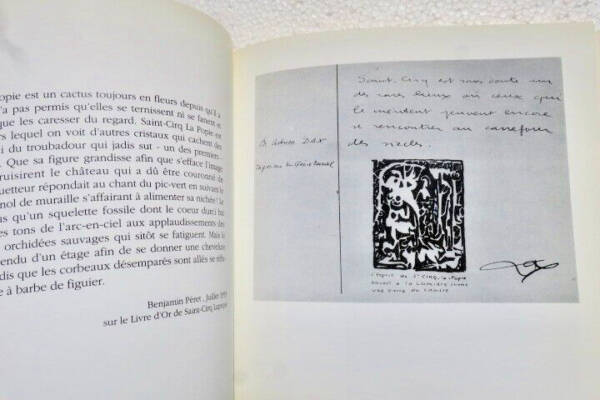 opie est un cactus toujours en fleurs depuis qu'il a
'a pas permis qu'elles se ternissent ni se fanent et
que les caresser du regard. Saint-Cirq La Popie est
rs lequel on voit d'autres cristaux qui cachent des
i du troubadour qui jadis sut - un des premiers -
. Que sa figure grandisse afin que s'efface l'image
ruisirent le château qui a dû être couronné de
uetteur répondait au chant du pic-vert en suivant le
nol de muraille s'affairant à alimenter sa nichée !
us qu'un squelette fossile dont le coeur durci bu
les tons de l'arc-en-ciel aux applaudissements des
orchidées sauvages qui sitôt se fatiguent. Mais
endu d'un étage afin de se donner une chevelure
dis que les corbeaux désemparés sont allés se
e à barbe de figuier.
Benjamin Péret, Juillet
sur le Livre d'Or de Saint-Cirq Lapopie
Saint-Cirq est sans doute un
des rares lieux où ceux qui
le méritent peuvent encore
se rencontrer au carrefour
des siècles.
Adrien DAX
L'esprit de St CIRQ la Popie
à la lumière